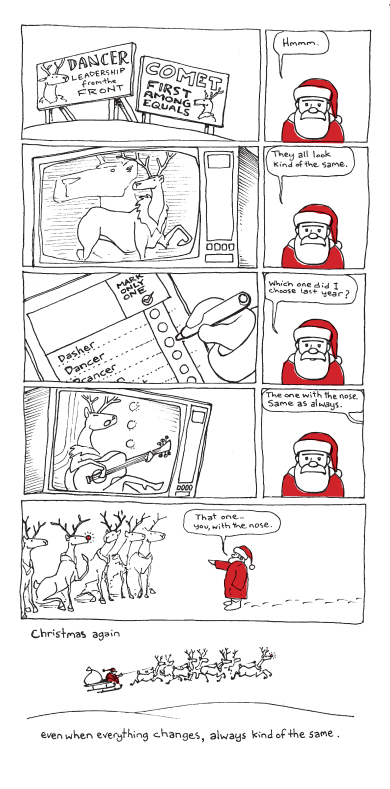 DANCER
LEADERSHIP
from the
FRONT
COMET
FIRST
AMONG
EQUALS
Hmmm.
They all look
kind of the same.
MARK
ONLY
ONE
Dasher
Dancer
Prancer
Which one did I
choose last year?
The one with the nose.
Same as always.
That one...
you, with the nose.
Christmas again
even when everything changes, always kind of the same.